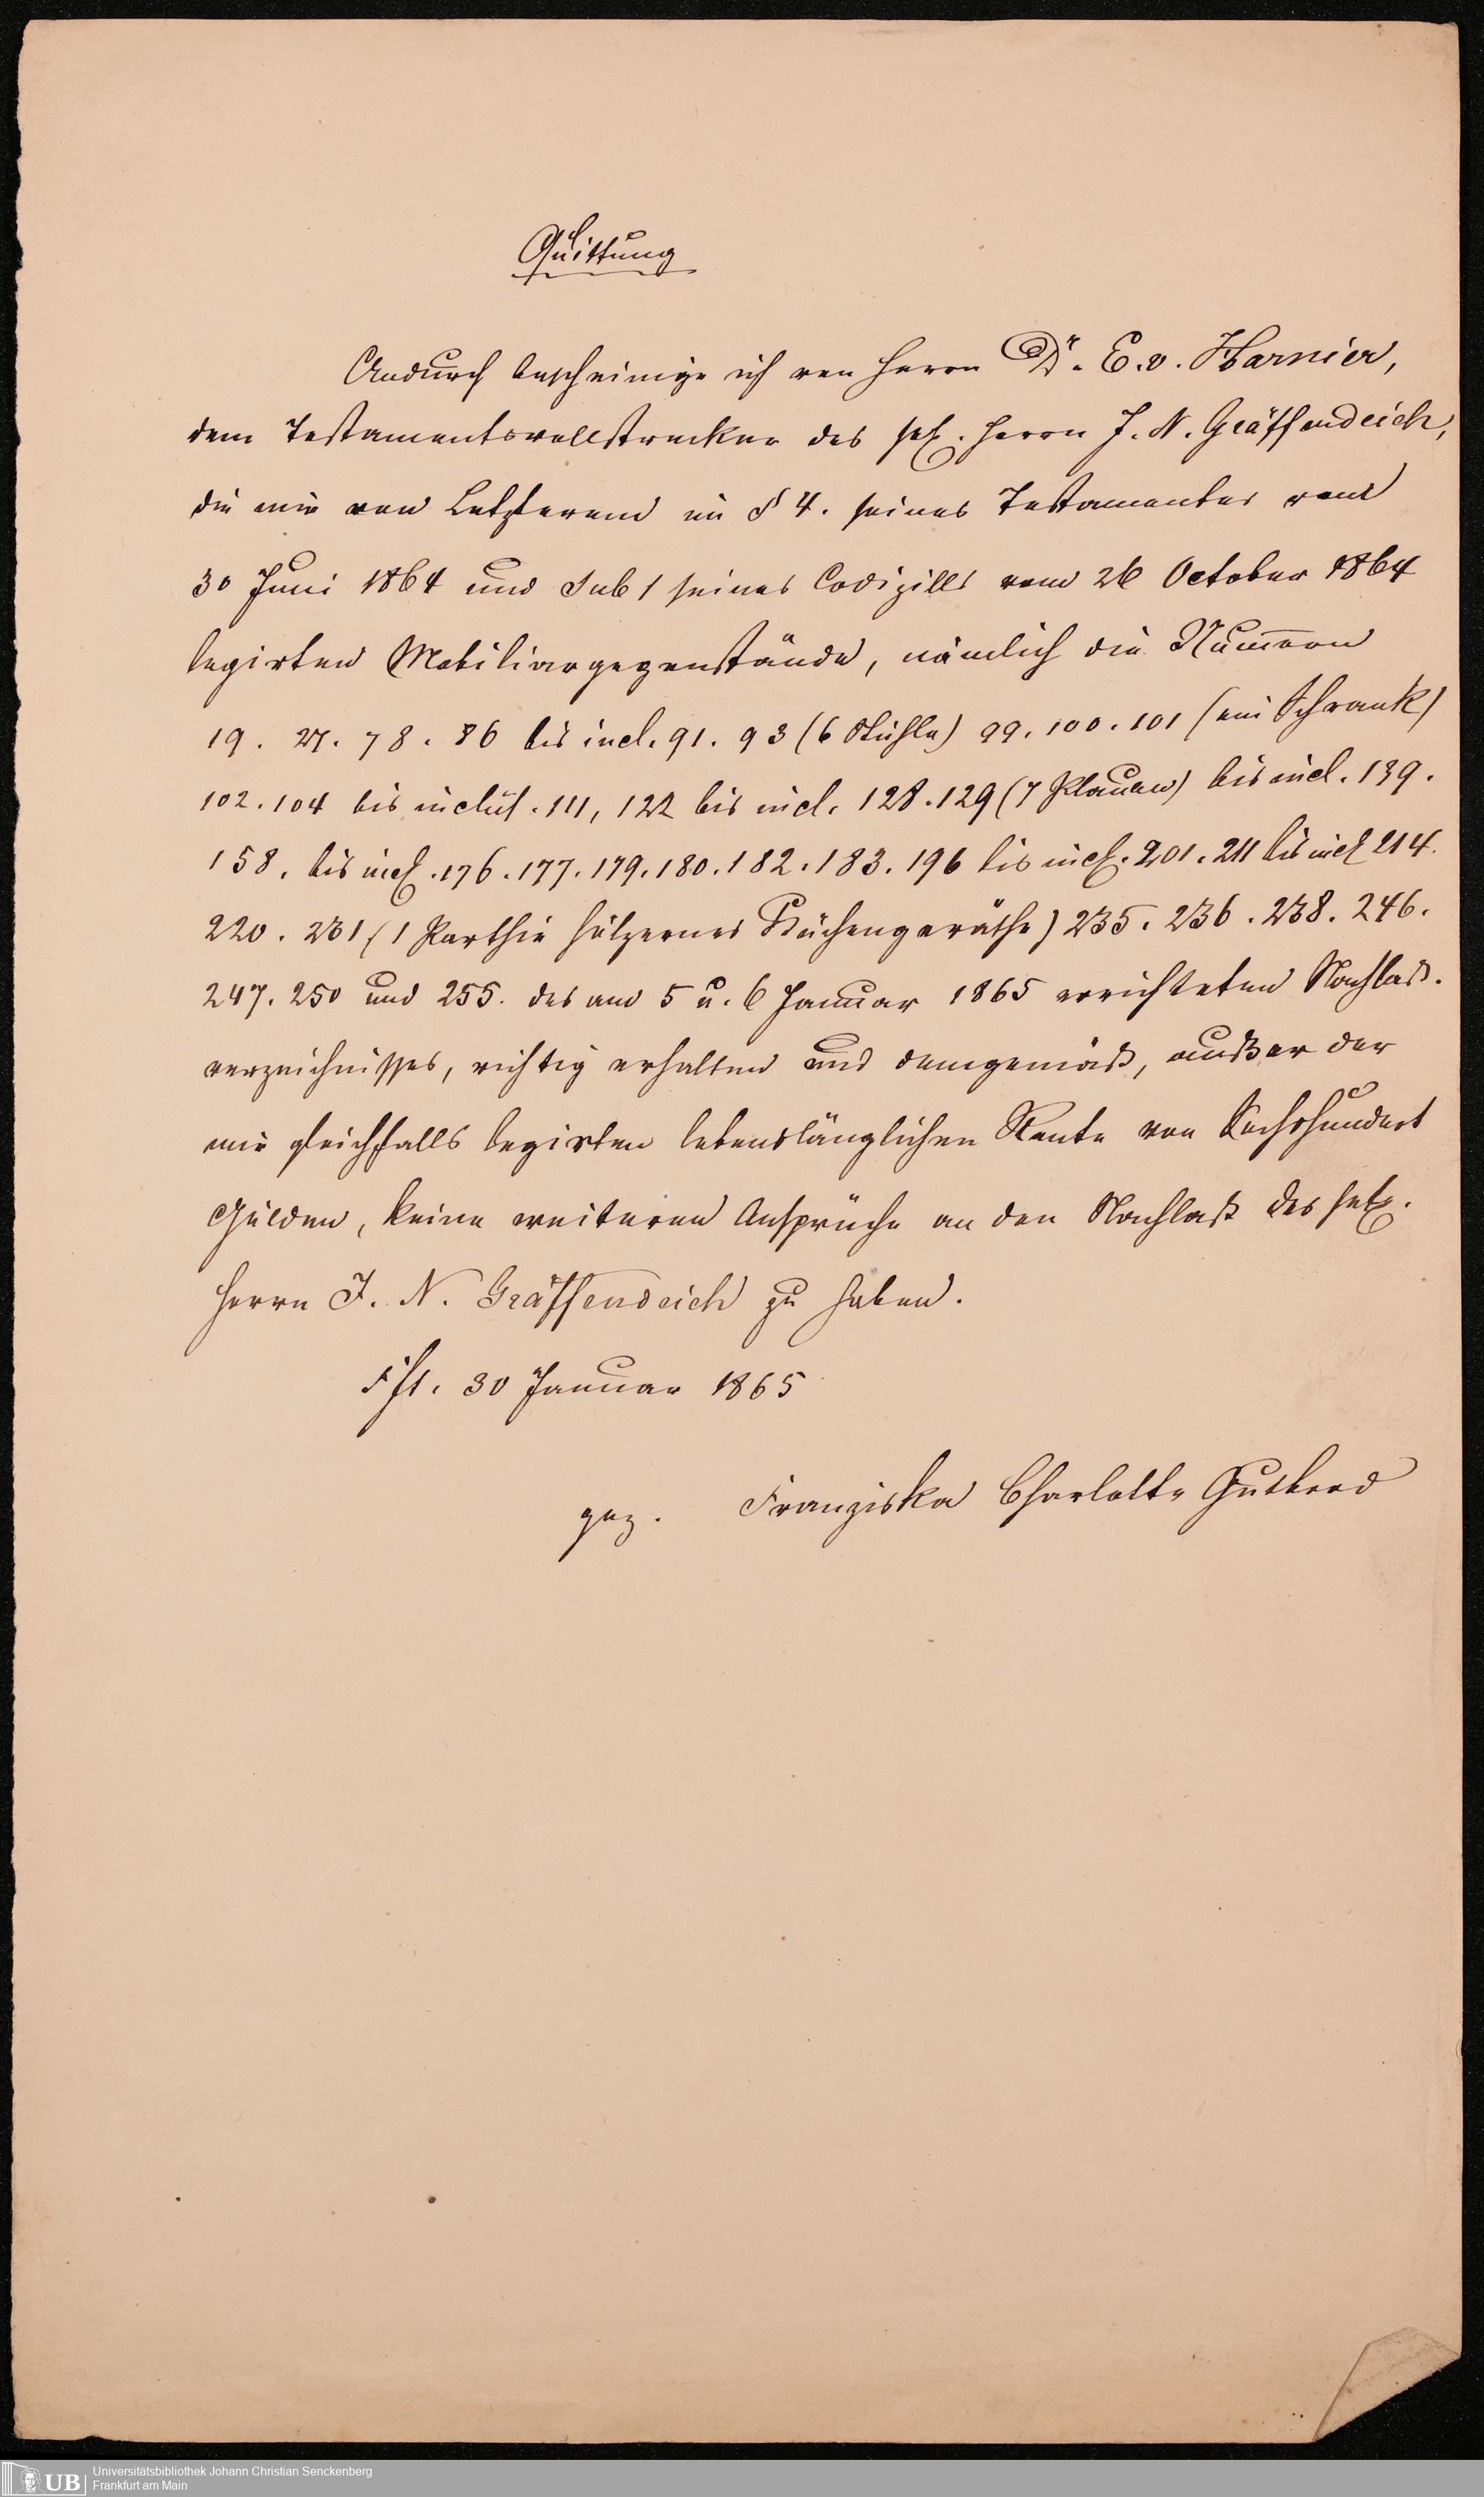 Quittung
Andurch bescheinige ich von Herrn Dr. E. v. Harnier,
dem Testamentsvollstrecker des sel. Herrn J. N. Gräffendeich,
die mir von Letzterem in § 4. seines Testamentes vom
30 Juni 1864 und sub 1 seines Codizills vom 26 October 1864
legirten Mobiliargegenstände, nämlich die Numern
19. 27. 78. 86 bis incl. 91. 93 (6 Stühle) 99. 100. 101 (ein Schrank)
102. 104 bis inclus. 111, 122 bis incl. 128. 129 (7 Plauen) bis incl. 139.
158. bis incl. 176. 177. 179. 180. 182. 183. 196 bis incl. 201. 211 bis incl 214.
220. 231 (1 Parthie hölzernes Küchengeräthe) 235. 236. 238. 246.
247. 250 und 255. des am 5 u. 6 Januar 1865 errichteten Nachlaß-
verzeichnisses, richtig erhalten und demgemäß, außer der
mir gleichfalls legirten lebenslänglichen Rente von Sechshundert
Gulden, keine weiteren Ansprüche an den Nachlaß des sel.
Herrn J. N. Gräffendeich zu haben.
Fft. 30 Januar 1865
gez. Franziska Charlotte Gutbrod
UB
Universitätsbibliothek Johann Christian Senckenberg
Frankfurt am Main